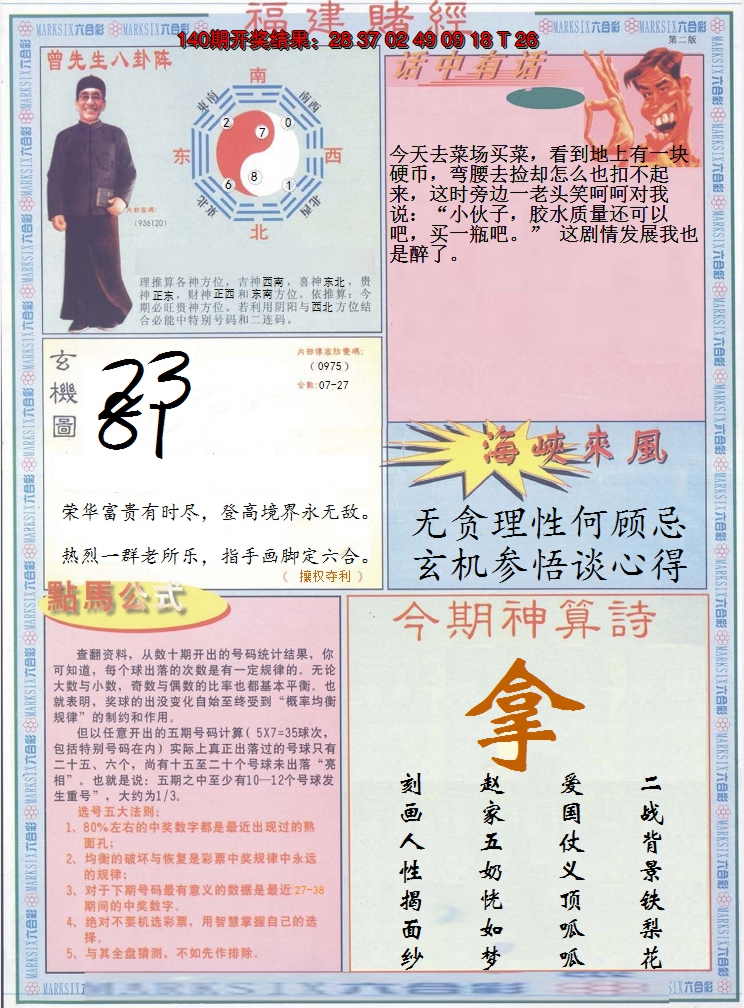 福建賭經
140期开奖结果：28 37 02 49 09 18 T 26
MARKSIX六合彩
第二版
曾先生八卦阵
南
东南
南西
2
7
0
东
西
6
8
1
東北
北西
北
內部密碼:
(936120)
理推算各神方位，吉神西南，喜神东北，贵
神正东，财神正西和东南方位。依推算：今
期必旺贵神方位。若利用阴阳与西北方位结
合必能中特别号码和二连码。
话中有话
今天去菜场买菜，看到地上有一块
硬币，弯腰去捡却怎么也扣不起
来，这时旁边一老头笑呵呵对我
说：“小伙子，胶水质量还可以
吧，买一瓶吧。” 这剧情发展我也
是醉了。
玄機圖
內部傳密防變碼:
（0975）
合數:07-27
荣华富贵有时尽，登高境界永无敌。
热烈一群老所乐，指手画脚定六合。
（ 攘权夺利 ）
海峽來風
无贪理性何顾忌
玄机参悟谈心得
點馬公式
查翻资料，从数十期开出的号码统计结果，你
可知道，每个球出落的次数是有一定规律的。无论
大数与小数，奇数与偶数的比率也都基本平衡。也
就表明，奖球的出没变化自始至终受到“概率均衡
规律”的制约和作用。
但以任意开出的五期号码计算( 5X7=35球次，
包括特别号码在内) 实际上真正出落过的号球只有
二十五、六个，尚有十五至二十个号球未出落“亮
相”。也就是说：五期之中至少有10—12个号球发
生重号”，大约为1/3。
选号五大法则:
1、80%左右的中奖数字都是最近出现过的熟
面孔；
2、均衡的破坏与恢复是彩票中奖规律中永远
的规律；
3、对于下期号码最有意义的数据是最近27-38
期间的中奖数字。
4、绝对不要机选彩票，用智慧掌握自己的选
择。
5、与其全盘猜测，不如先作排除。
今期神算詩
拿
二战背景铁梨花
爱国仗义顶呱呱
赵家五奶恍如梦
刻画人性揭面纱